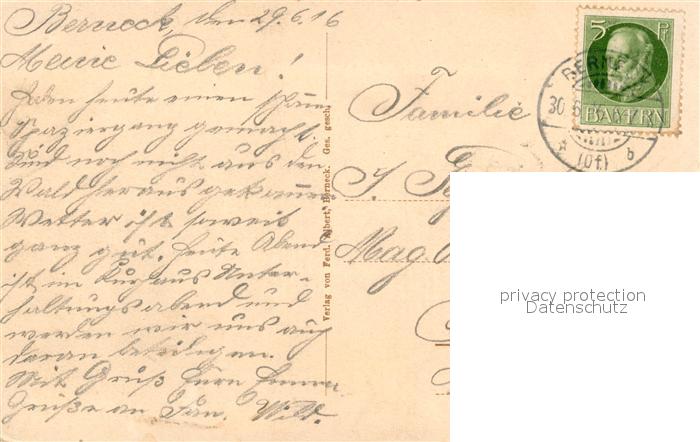 Berneck, den 29.6.16
Meine Lieben!
Haben heute einen schönen
Spaziergang gemacht.
Sind noch nicht aus den
Wald heraus gekommen
Wetter ist soweit
ganz gut. Heute Abend
ist im Kurhaus Unter-
haltungsabend und
werden wir uns auch
daran beteiligen.
Mit Gruß
Grüße an
Verlag von Ferd. Albert, Berneck. Ges. gesch.
Familie
Mag.
5 Pf
BAYERN
BERNECK
30
(Of.)
b
privacy protection
Datenschutz